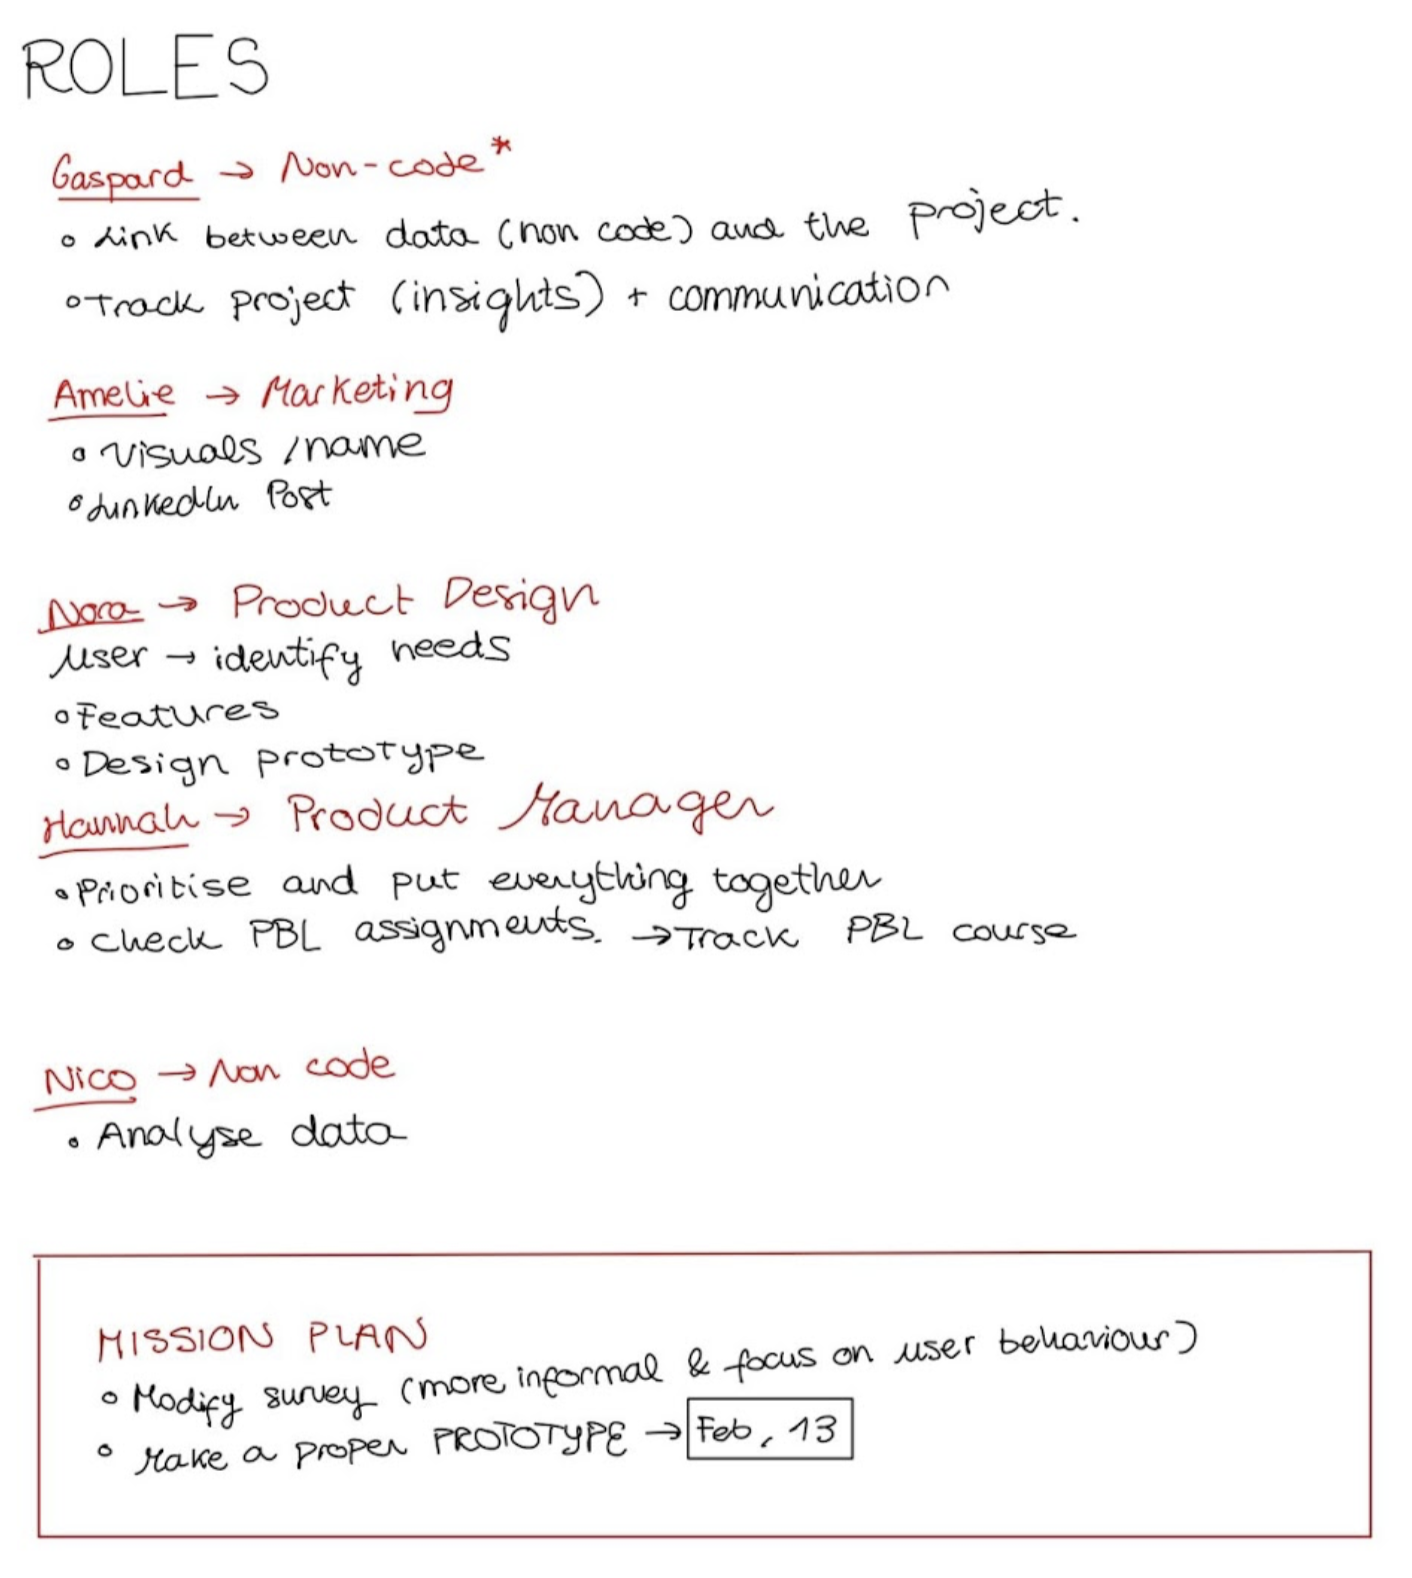 ROLES
Gaspard → Non-code*
• Link between data (non code) and the project.
• Track project (insights) + communication
Amelie → Marketing
• Visuals / name
• LinkedIn Post
Nora → Product Design
User → identify needs
• Features
• Design prototype
Hannah → Product Manager
• Prioritise and put everything together
• Check PBL assignments. → Track PBL course
Nico → Non code
• Analyse data
MISSION PLAN
• Modify survey (more informal & focus on user behaviour)
• Make a proper PROTOTYPE → Feb, 13